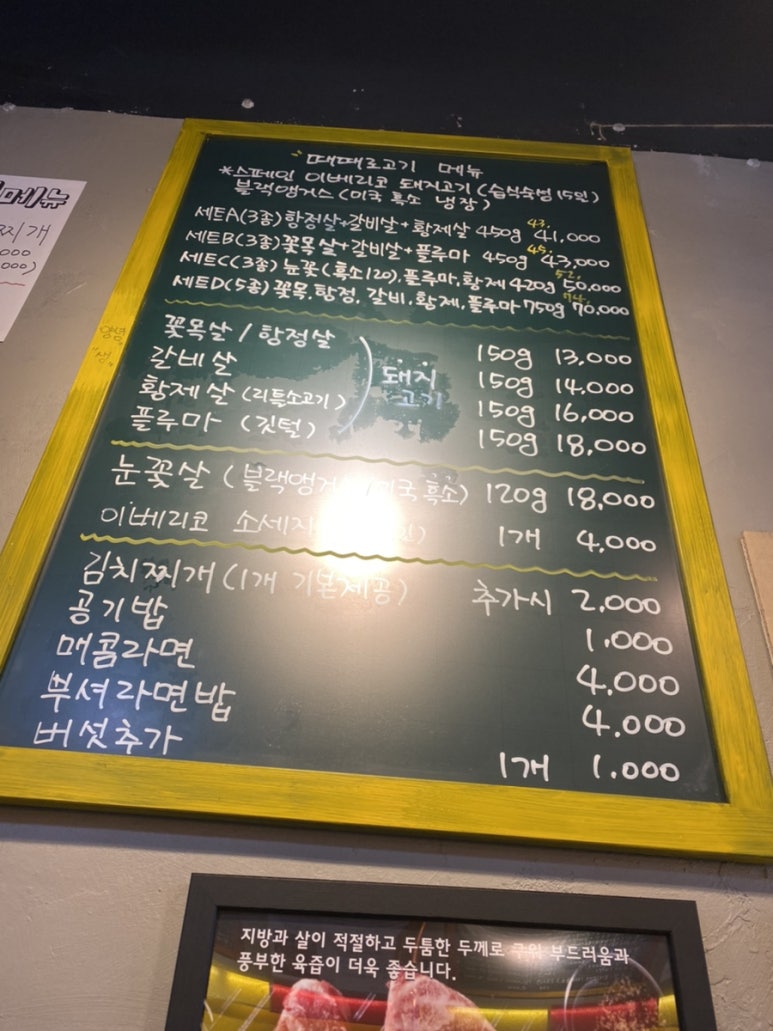 때때로고기 메뉴
*스페인 이베리코 돼지고기 (습식숙성 15일)
블랙앵거스 (미국 흑소 냉장)
43.
세트A(3종) 항정살+갈비살+황제살 450g 41,000
45.
세트B(3종) 꽃목살+갈비살+플루마 450g 43,000
52.
세트C(3종) 눈꽃(흑소120), 플루마, 황제 420g 50,000
74.
세트D(5종) 꽃목, 항정, 갈비, 황제, 플루마 750g 70,000
꽃목살 / 항정살 150g 13,000
갈비살 150g 14,000
돼지
고기
황제살 (리틀소고기) 150g 16,000
플루마 (깃털) 150g 18,000
눈꽃살 (블랙앵거 미국 흑소) 120g 18,000
이베리코 소세지 1개 4,000
김치찌개 (1개 기본제공) 추가시 2,000
공기밥 1,000
매콤라면 4,000
부셔라면밥 4.000
버섯추가 1개 1.000
메뉴
찌개
000
000)
지방과 살이 적절하고 두툼한 두께로 구워 부드러움과
풍부한 육즙이 더욱 좋습니다.